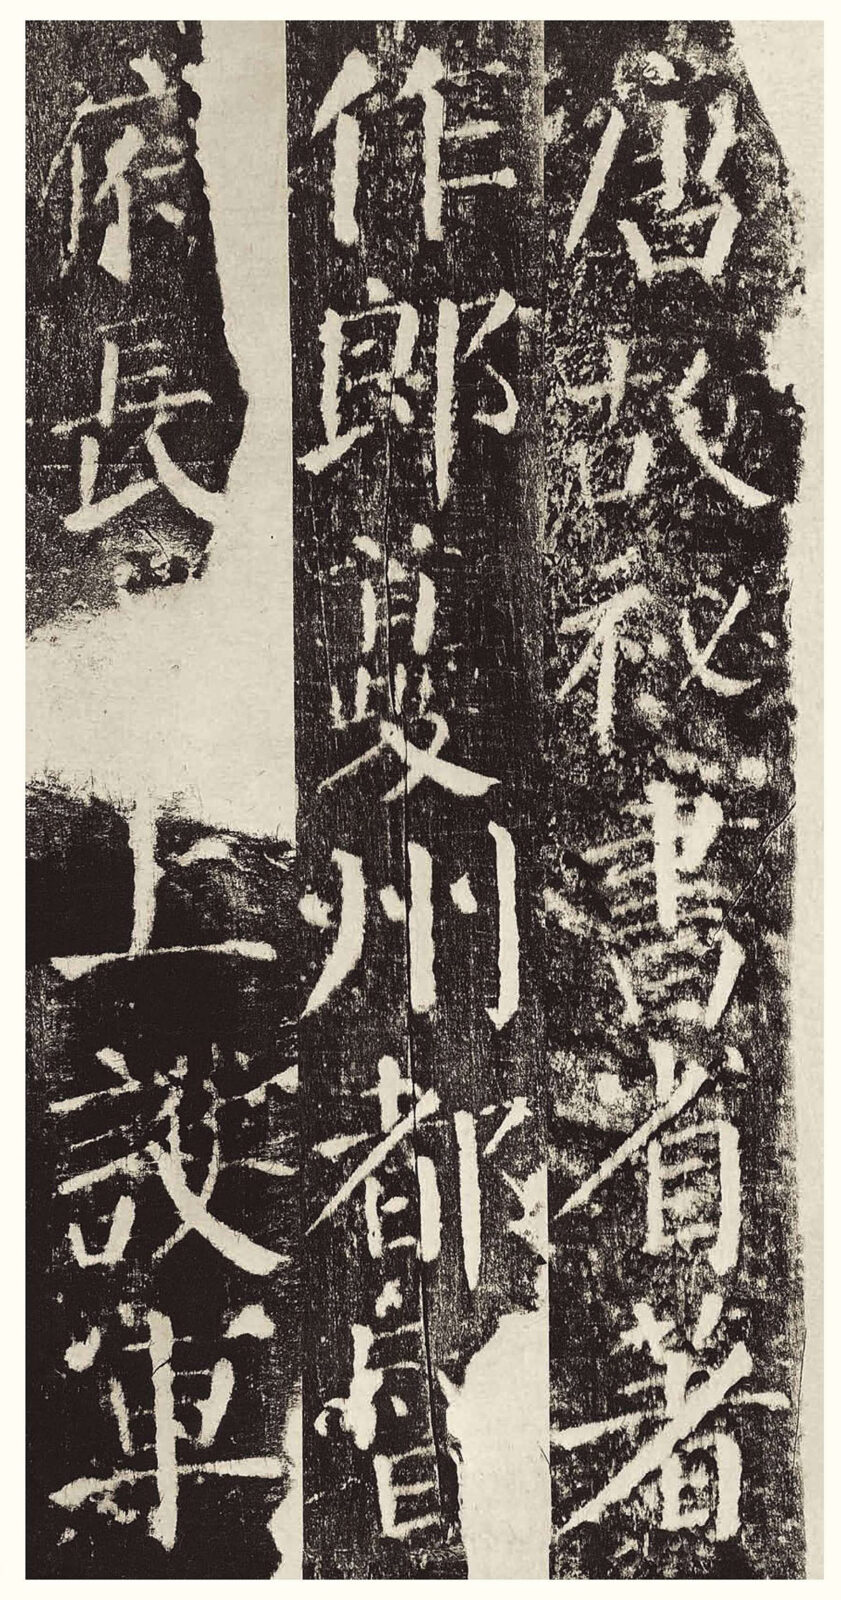 唐故秘書省著
作郎夔州都督
府長
上護軍